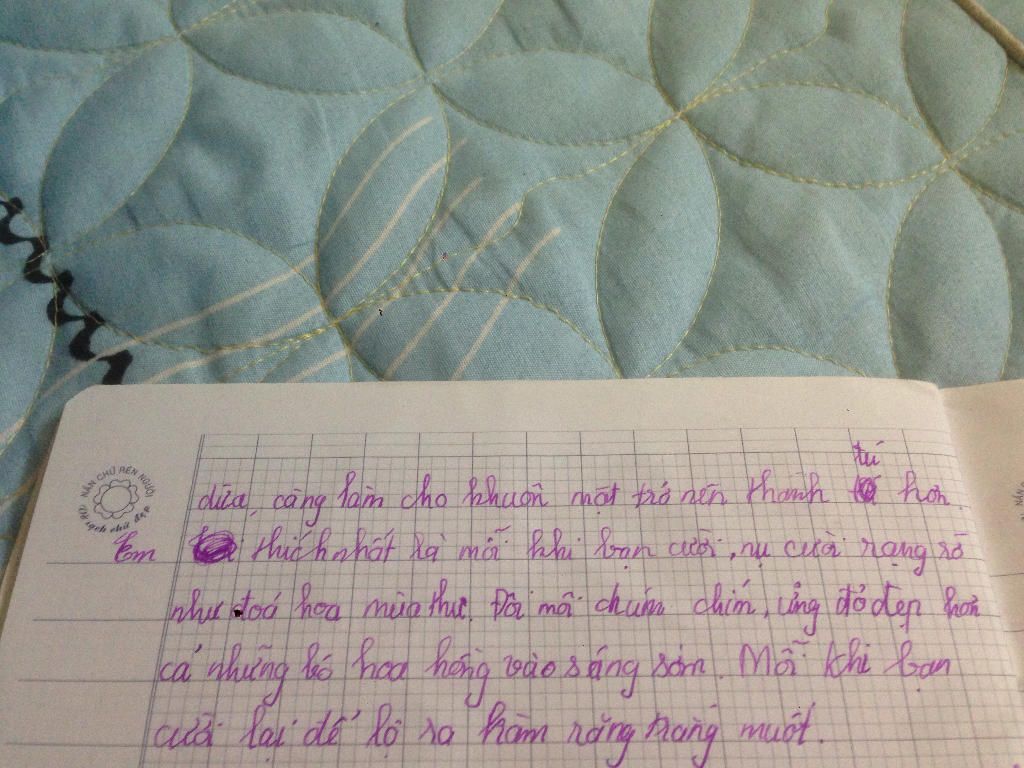 NẮN CHỮ RÈN NGƯỜI
tú
dừa, càng làm cho khuôn mặt trở nên thanh hơn.
Em thích nhất là mỗi khi bạn cười, nụ cười rạng rỡ
như đoá hoa mùa thu. Đôi môi chúm chím, ửng đỏ đẹp hơn
cả những bó hoa hồng vào sáng sớm. Mỗi khi bạn
cười lại để lộ ra hàm răng trắng muốt.